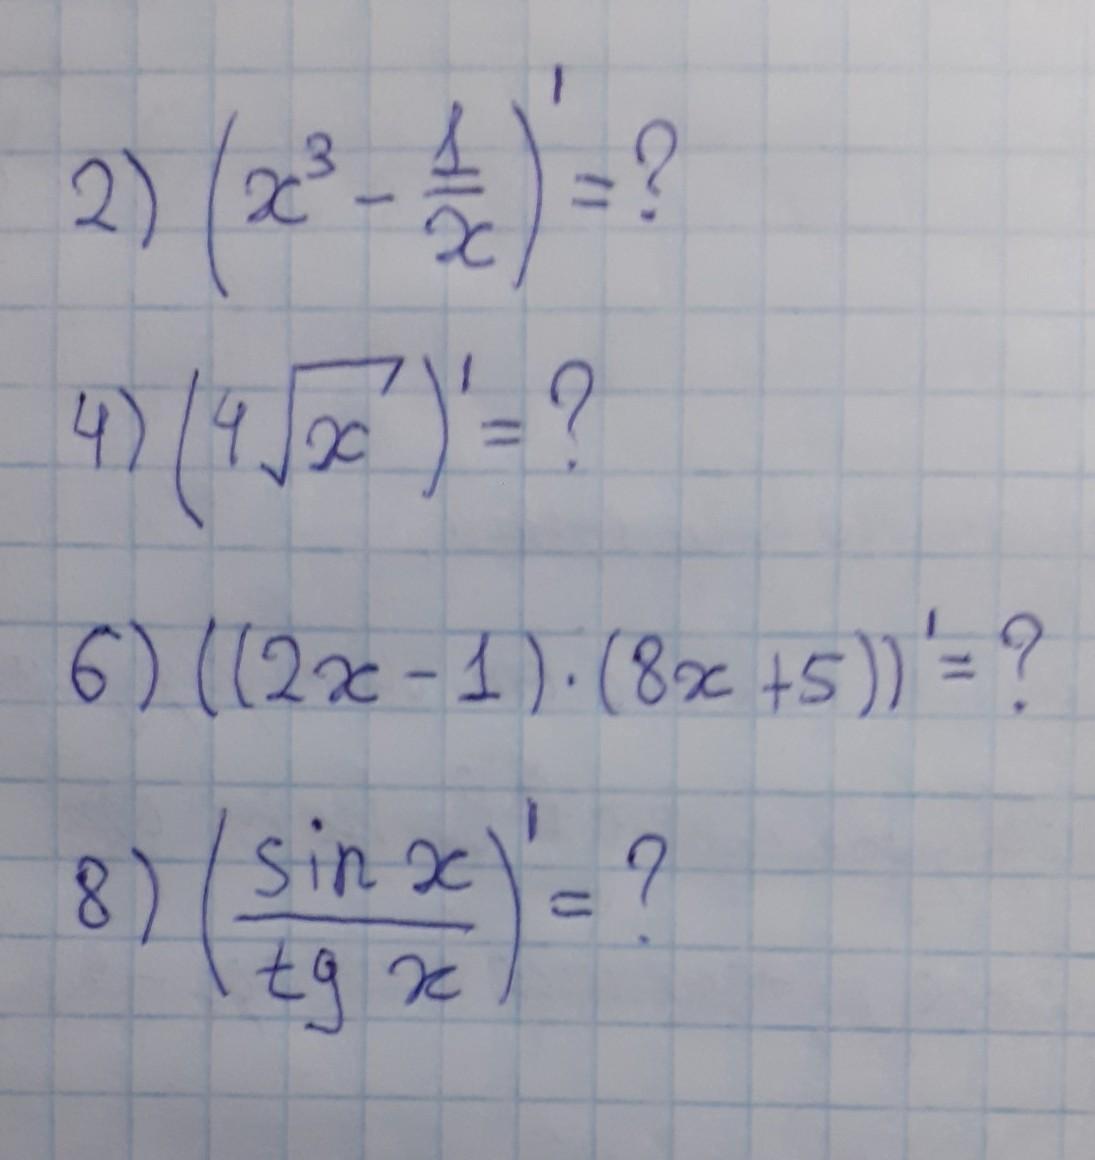 2) (x³ - 1/x)' = ?
4) (4√x)' = ?
6) ((2x - 1) · (8x + 5))' = ?
8) (sin x / tg x)' = ?